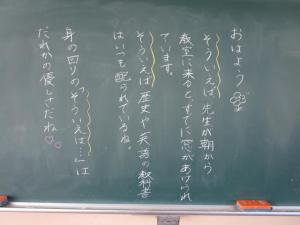 おはよう
そういえば先生が朝から
教室に来ると、すでに窓があけられ
ています。
そういえば歴史や英語の教科書
はいつも配られているね。
身の回りの「そういえば…」は
だれかの優しさだね